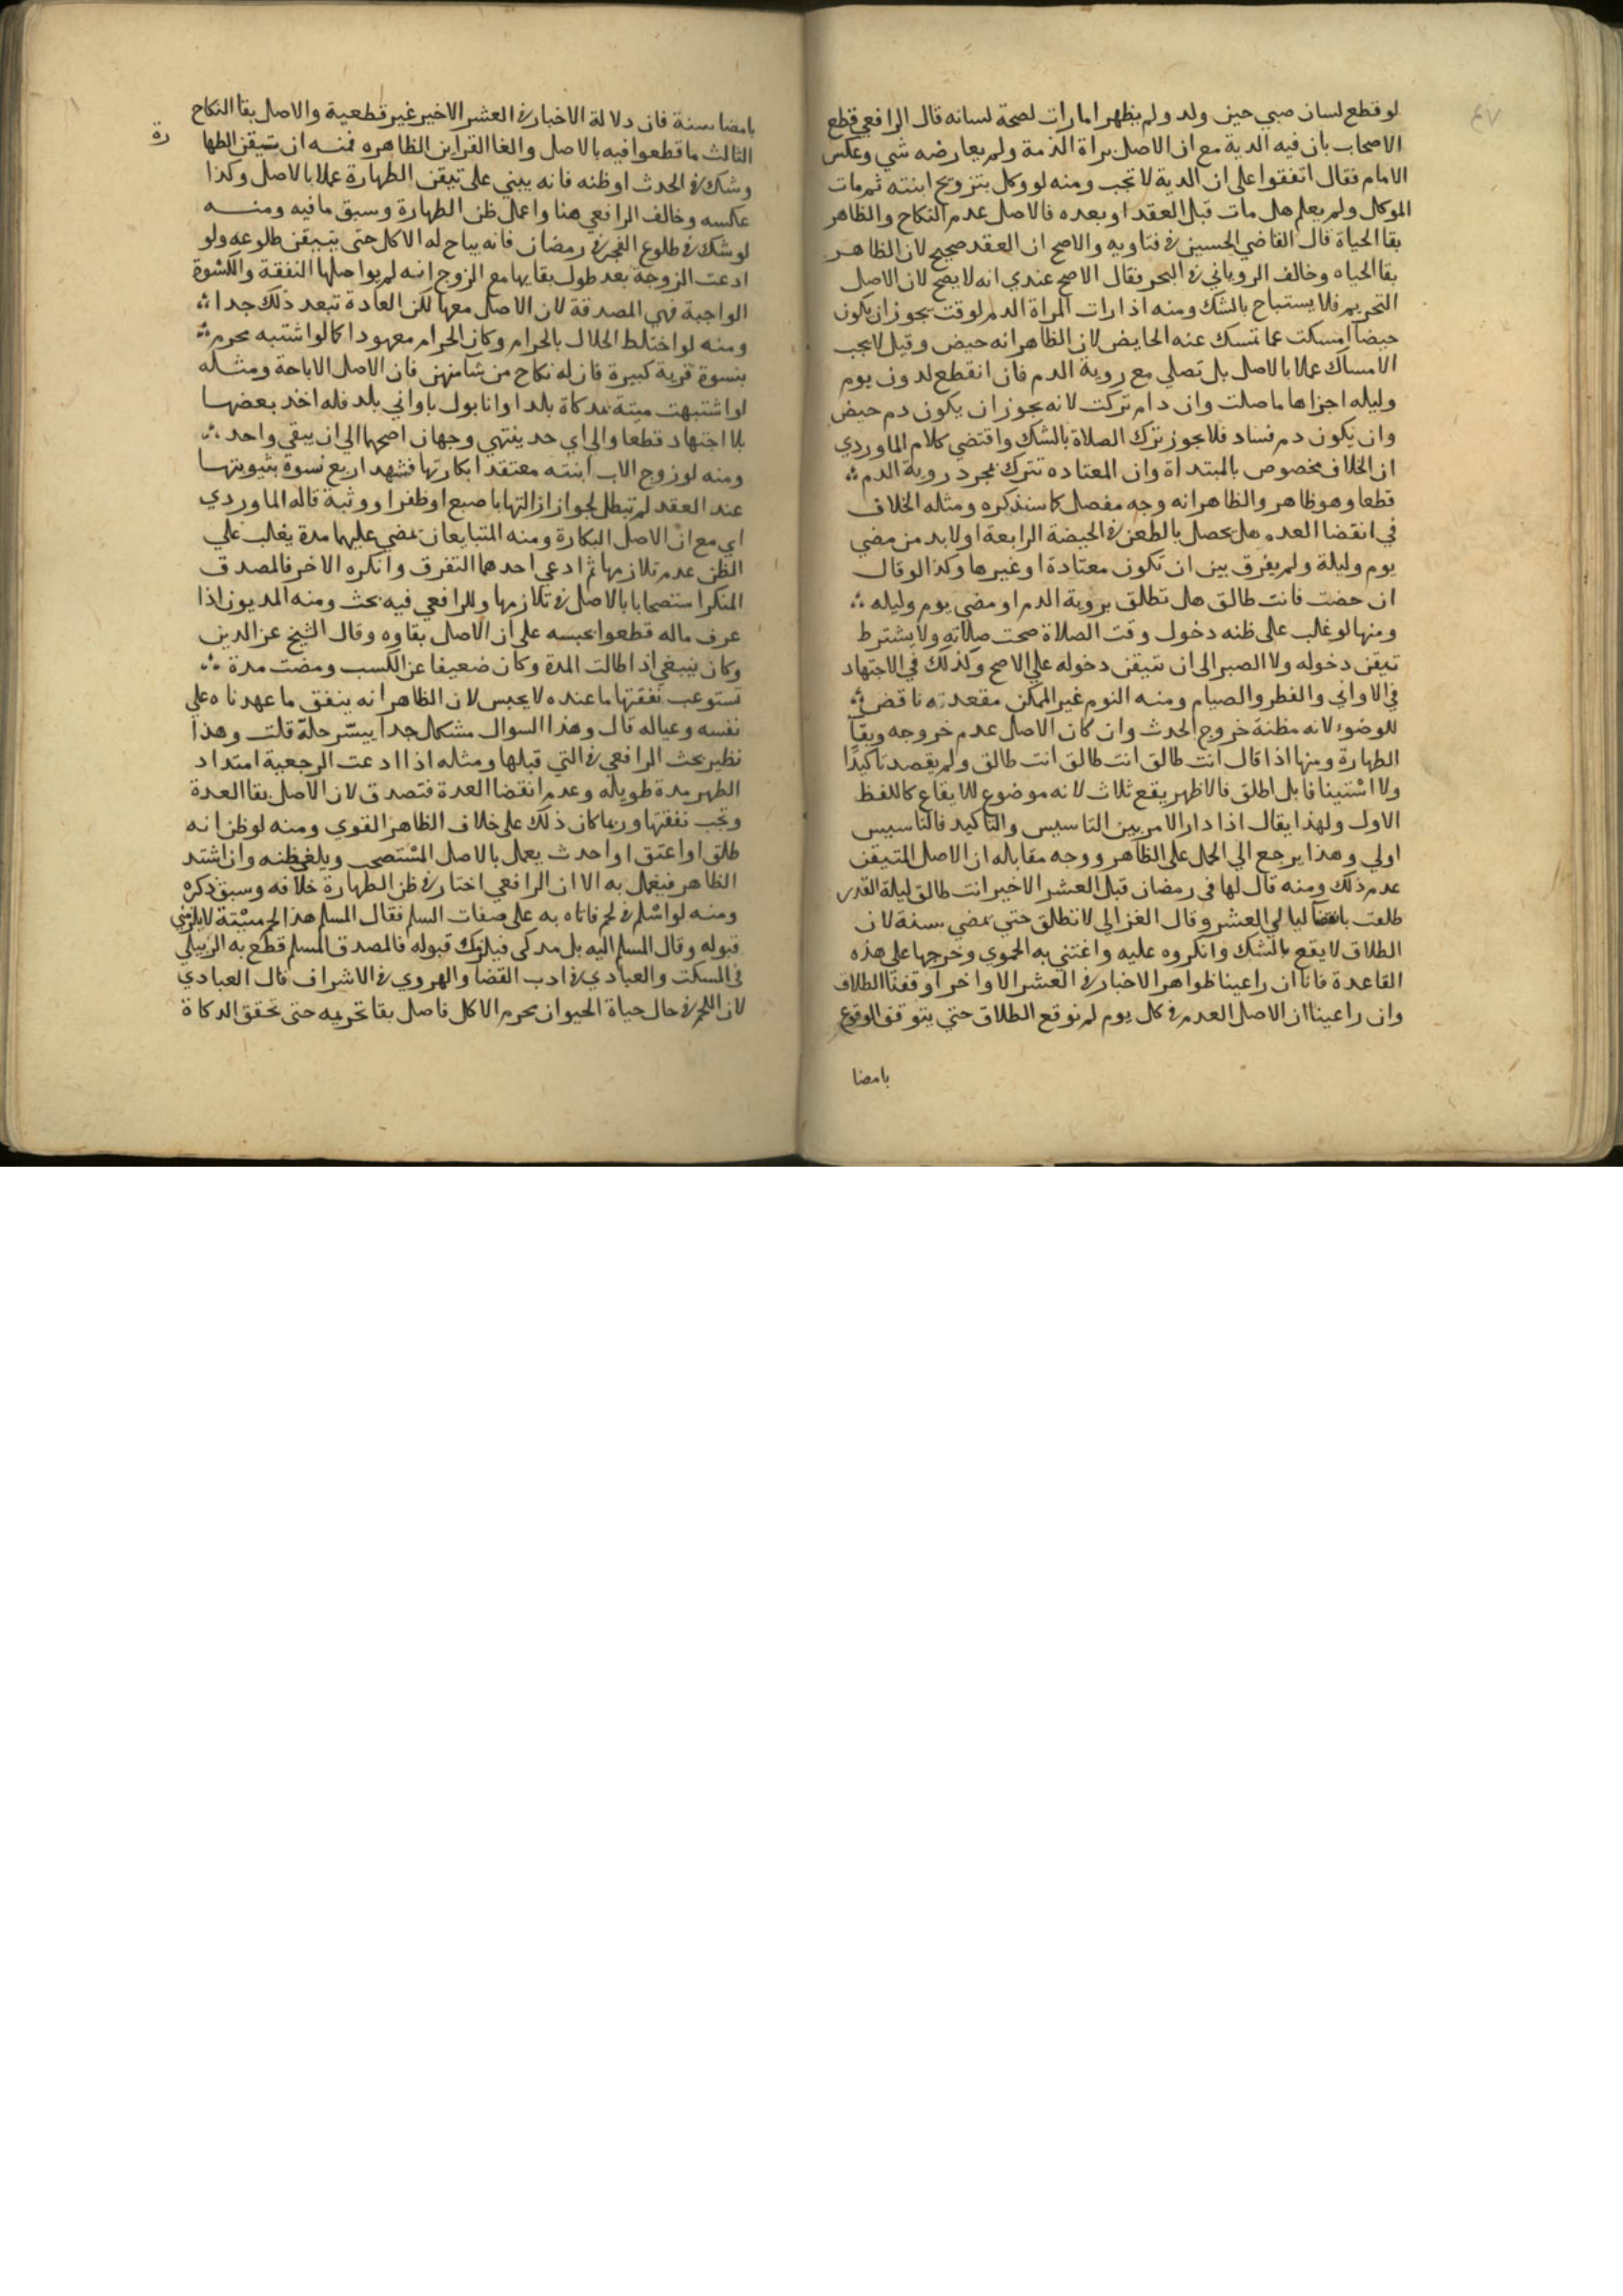 ٤٧
لو قطع لسان صبي حين ولد ولم يظهر امارات لصحة لسانه قال الرافعي قطع
الاصحاب بان فيه الدية مع ان الاصل براة الذمة ولم يعارضه شي وعكس
الامام فقال اتفقوا على ان الدية لا تجب ومنه لو وكل بتزويج ابنته ثم مات
الموكل ولم يعلم هل مات قبل العقد او بعده فالاصل عدم النكاح والظاهر
بقا الحياة قال القاضي الحسين في فتاويه والاصح ان العقد صحيح لان الظاهر
بقا الحياه وخالف الروياني في البحر فقال الاصح عندي انه لا يصح لان الاصل
التحريم فلا يستباح بالشك ومنه اذا رات المراة الدم لوقت يجوز ان يكون
حيضا امسكت عما تمسك عنه الحايض لان الظاهر انه حيض وقيل لا يجب
الامساك عملا بالاصل بل تصلي مع روية الدم فان انقطع لدون يوم
وليله اجزاها ما صلت وان دام تركت لانه يجوز ان يكون دم حيض
وان يكون دم فساد فلا يجوز ترك الصلاة بالشك واقتضى كلام الماوردي
ان الخلاف مخصوص بالمبتداة وان المعتاده تترك بمجرد روية الدم
قطعا وهو ظاهر والظاهر انه وجه مفصل كما سنذكره ومثله الخلاف
في انقضا العده هل يحصل بالطعن في الحيضة الرابعة او لا بد من مضي
يوم وليلة ولم يفرق بين ان تكون معتادة او غيرها وكذا لو قال
ان حضت فانت طالق هل تطلق بروية الدم او مضي يوم وليله
ومنها لو غلب على ظنه دخول وقت الصلاة صحت صلاته ولا يشترط
تيقن دخوله ولا الصبر الى ان تتيقن دخوله علي الاصح وكذلك في الاجتهاد
في الاواني والفطر والصيام ومنه النوم غير الممكن مقعدته ناقض
للوضوء لانه مظنة خروج الحدث وان كان الاصل عدم خروجه وبقآ
الطهارة ومنها اذا قال انت طالق انت طالق انت طالق ولم يقصد تاكيدا
ولا استينافا بل اطلق فالاظهر يقع ثلاث لانه موضوع للايقاع كاللفظ
الاول ولهذا يقال اذا دار الامر بين التاسيس والتاكيد فالتاسيس
اولي وهذا يرجع الي الحمل على الظاهر ووجه مقابله ان الاصل المتيقن
عدم ذلك ومنه قال لها في رمضان قبل العشر الاخير انت طالق ليلة القدر
طلقت بانقضآ ليالي العشر وقال الغزالي لا تطلق حتي تمضي سنة لان
الطلاق لا يقع بالشك وانكروه عليه واعتني به الحموي وخرجها على هذه
القاعدة فانا ان راعينا ظواهر الاخبار في العشر الاواخر اوقفنا الطلاق
وان راعينا ان الاصل العدم في كل يوم لم نوقع الطلاق حتي يتوقف الوقوع
بامضا
بامضا سنة فان دلالة الاخبار في العشر الاخير غير قطعية والاصل بقا النكاح
الثالث ما قطعوا فيه بالاصل والغا القراين الظاهره فمنه ان تتيقن الطها
رة
وشك في الحدث او ظنه فانه يبني على تيقن الطهارة عملا بالاصل وكذا
عكسه وخالف الرافعي هنا واعمل ظن الطهارة وسبق ما فيه ومنه
لو شك في طلوع الفجر في رمضان فانه يباح له الاكل حتى يتيقن طلوعه ولو
ادعت الزوجة بعد طول بقايها مع الزوج انه لم يواصلها النفقة والكسوة
الواجبة فهي المصدقة لان الاصل معها لكن العادة تبعد ذلك جدا
ومنه لو اختلط الحلال بالحرام وكان الحرام معهودا كما لو اشتبه محرم
بنسوة قرية كبيرة فان له نكاح من شا منهن فان الاصل الاباحة ومثله
لو اشتبهت ميتة بمذكاة بلد او انا بول باواني بلد فله اخذ بعضها
بلا اجتهاد قطعا والى اي حد ينتهي وجهان اصحهما الي ان يبقي واحد
ومنه لو زوج الاب ابنته معتقدا بكارتها فشهد اربع نسوة بثيوبتها
عند العقد لم تبطل لجواز ازالتها باصبع او ظفر او وثبة قاله الماوردي
اي مع ان الاصل البكارة ومنه المتبايعان تمضي عليهما مدة يغلب علي
الظن عدم تلازمهما ثم ادعي احدهما التفرق وانكره الاخر فالمصدق
المنكر استصحابا بالاصل في تلازمهما وللرافعي فيه بحث ومنه المديون اذا
عرف ماله قطعوا بحبسه على ان الاصل بقاوه وقال الشيخ عز الدين
وكان ينبغي اذا طالت المدة وكان ضعيفا عن الكسب ومضت مدة
تستوعب نفقتها ما عنده لا يحبس لان الظاهر انه ينفق ما عهدناه علي
نفسه وعياله قال وهذا السوال مشكل جدا ييسر حله قلت وهذا
نظير بحث الرافعي في التي قبلها ومثله اذا ادعت الرجعية امتداد
الطهر مدة طويلة وعدم انقضا العدة فتصدق لان الاصل بقا العدة
وتجب نفقتها وربما كان ذلك على خلاف الظاهر القوي ومنه لو ظن انه
طلق او اعتق او احدث يعمل بالاصل المستصحب ويلغي ظنه وان اشتد
الظاهر فيعمل به الا ان الرافعي اختار في ظن الطهارة خلافه وسبق ذكره
ومنه لو اسلم في لحم فاتاه به على صفات السلم فقال المسلم هذا لحم ميتة لا يلزمني
قبوله وقال المسلم اليه بل مذكى فيلزمك قبوله فالمصدق المسلم قطع به الزبيلي
في المسكت والعبادي في ادب القضا والهروي في الاشراف قال العبادي
لان اللحم في حال حياة الحيوان محرم الاكل فاصل بقا تحريمه حتى تحقق الذكاة